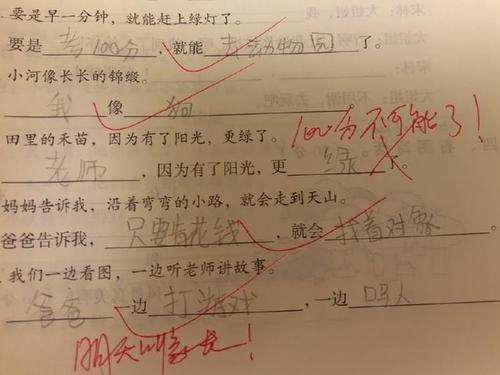 要是早一分钟，就能赶上绿灯了。
要是 考100分 ，就能 去动物园 了。
小河像长长的锦缎。
我 像 狗
100分不可能了！
田里的禾苗，因为有了阳光，更绿了。
老师 ，因为有了阳光，更 绿 了。
妈妈告诉我，沿着弯弯的小路，就会走到天山。
爸爸告诉我， 只要肯花钱 ，就会 找着对象
我们一边看图，一边听老师讲故事。
爸爸 一边 打游戏 ，一边 骂人
明天叫家长！